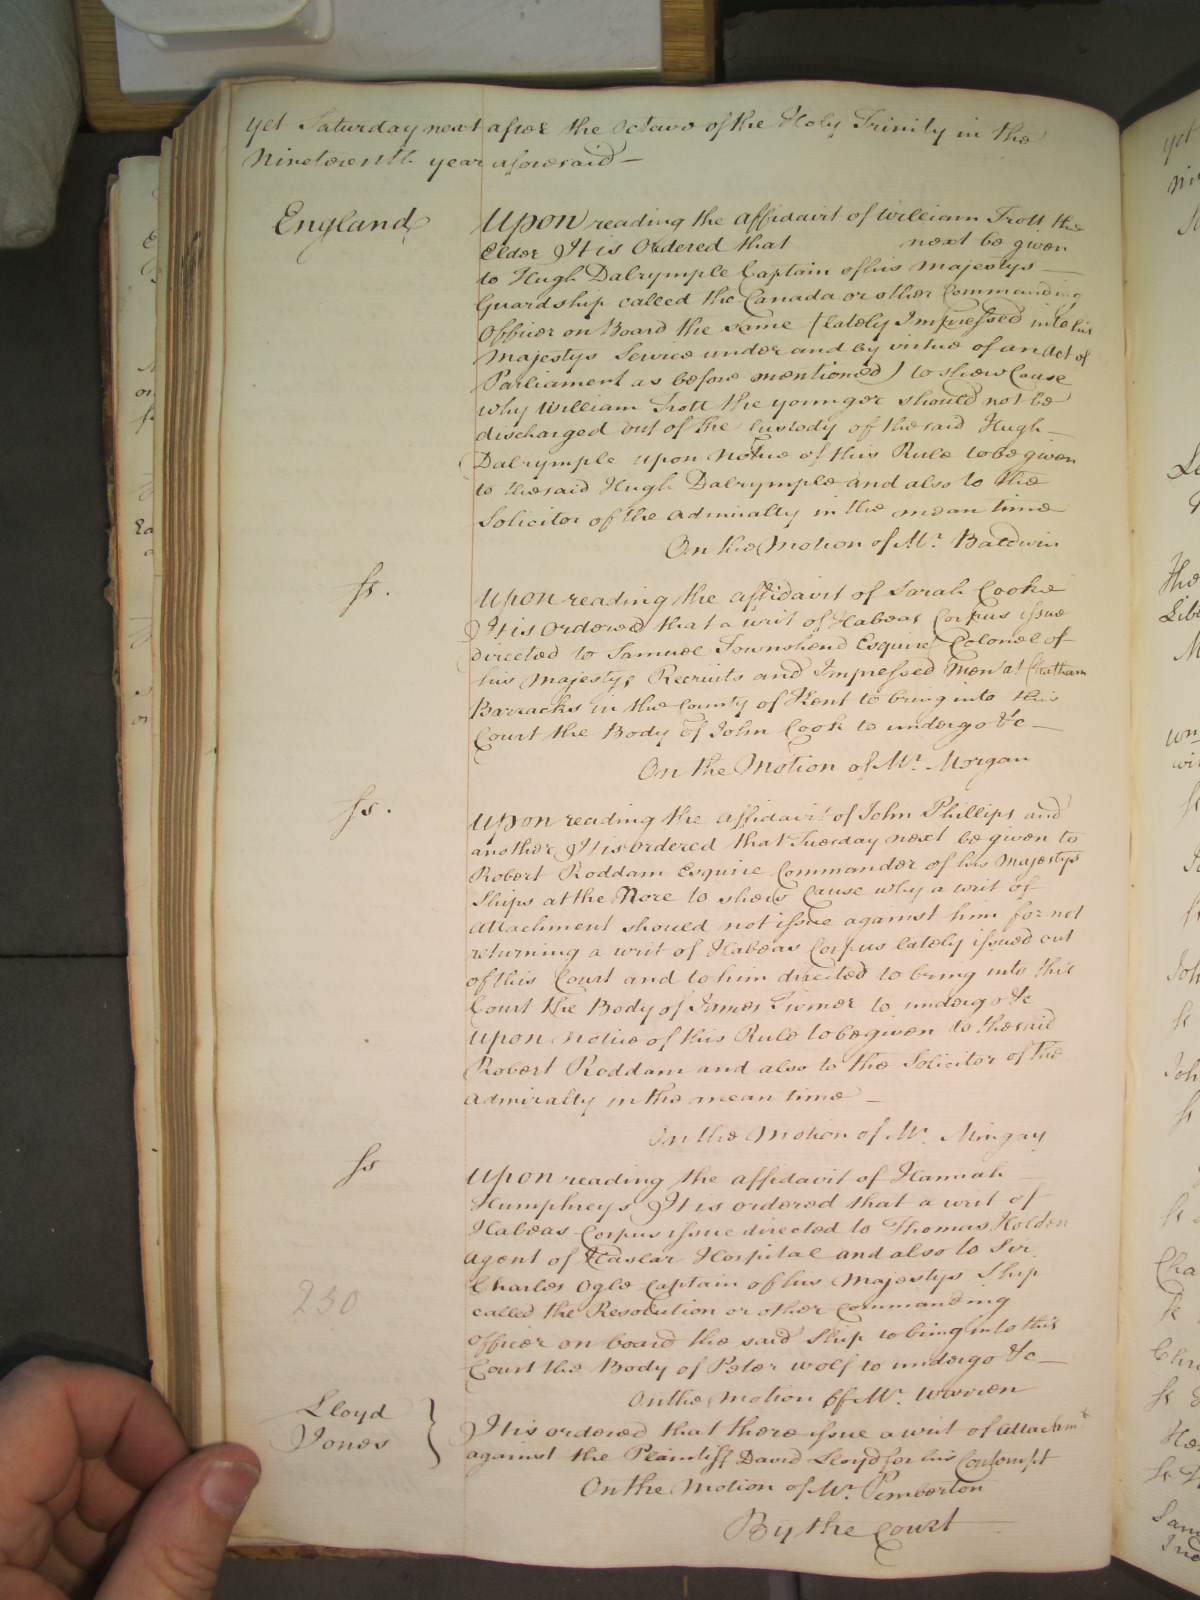 yet Saturday next after the Octave of the Holy Trinity in the
Nineteenth year aforesaid —
England Upon reading the affidavit of William Trott the
Elder It is Ordered that next be given
to Hugh Dalrymple Captain of his Majestys —
Guardship called the Canada or other Commanding
Officer on Board the same (lately Impressed into his
Majestys Service under and by virtue of an Act of
Parliament as before mentioned) to shew Cause
why William Trott the younger should not be
discharged out of the Custody of the said Hugh —
Dalrymple upon Notice of this Rule to be given
to the said Hugh Dalrymple and also to the
Solicitor of the Admiralty in the mean time
On the Motion of Mr. Baldwin
ss. Upon reading the affidavit of Sarah Cooke
It is Ordered that a writ of Habeas Corpus issue
directed to Samuel Townshend Esquire Colonel of
his Majestys Recruits and Impressed Men at Chatham
Barracks in the County of Kent to bring into this
Court the Body of John Cook to undergo &c —
On the Motion of Mr. Morgan
ss. Upon reading the affidavit of John Phillips and
another It is ordered that Tuesday next be given to
Robert Roddam Esquire Commander of his Majestys
Ships at the Nore to shew Cause why a writ of
Attachment should not issue against him for not
returning a writ of Habeas Corpus lately issued out
of this Court and to him directed to bring into this
Court the Body of James Turner to undergo &c
Upon notice of this Rule to be given to the said
Robert Roddam and also to the Solicitor of the
Admiralty in the mean time —
On the Motion of Mr. Mingay
ss Upon reading the affidavit of Hannah
Humphreys It is ordered that a writ of
Habeas Corpus issue directed to Thomas Holden
Agent of Haslar Hospital and also to Sir
Charles Ogle Captain of his Majestys Ship
230 called the Resolution or other Commanding
Officer on board the said Ship to bring into this
Court the Body of Peter Wolf to undergo &c —
On the Motion of Mr. Warren
Lloyd
Jones } It is ordered that there issue a writ of Attachmt
against the Plaintiff David Lloyd for his Contempt
On the Motion of Mr. Pemberton
By the Court